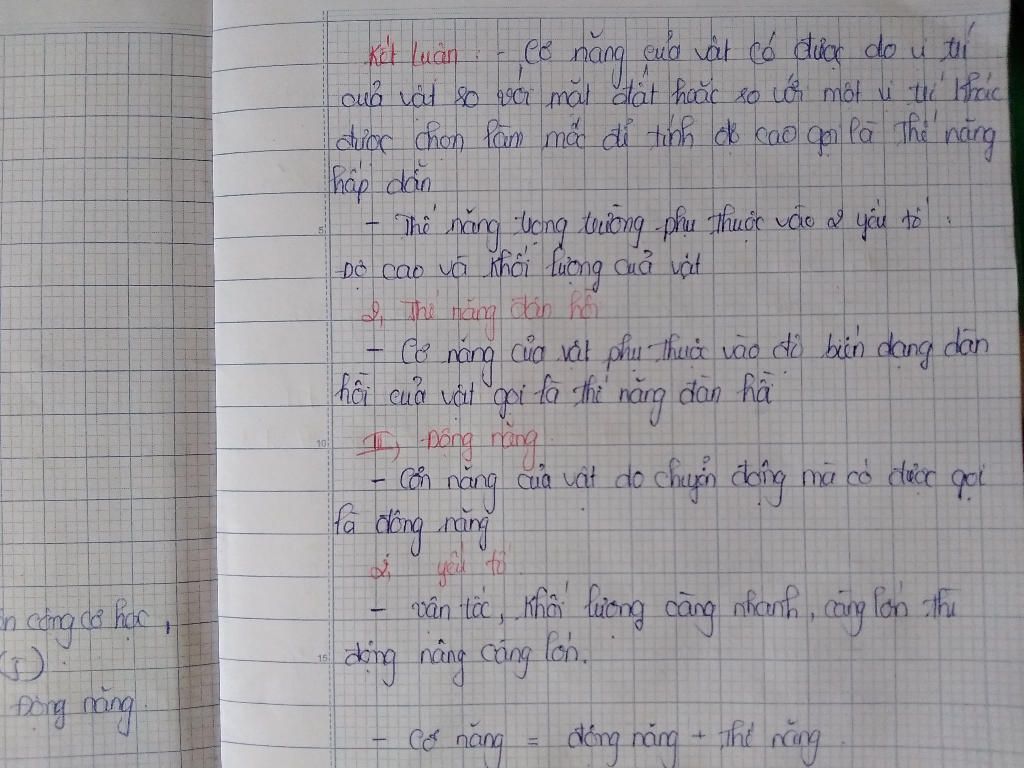 Kết luận: - Cơ năng của vật có được do vị trí
của vật so với mặt đất hoặc so với một vị trí khác
được chọn làm mốc để tính độ cao gọi là thế năng
hấp dẫn
- Thế năng trọng trường phụ thuộc vào 2 yếu tố:
Độ cao và khối lượng của vật
2, Thế năng đàn hồi
- Cơ năng của vật phụ thuộc vào độ biến dạng đàn
hồi của vật gọi là thế năng đàn hồi
II, Động năng
- Cơn năng của vật do chuyển động mà có được gọi
là động năng
2, yếu tố
- vân tốc, khối lượng càng nhanh, càng lớn thì
động năng càng lớn.
- Cơ năng = động năng + thế năng.
n công cơ học,
(J).
Động năng.